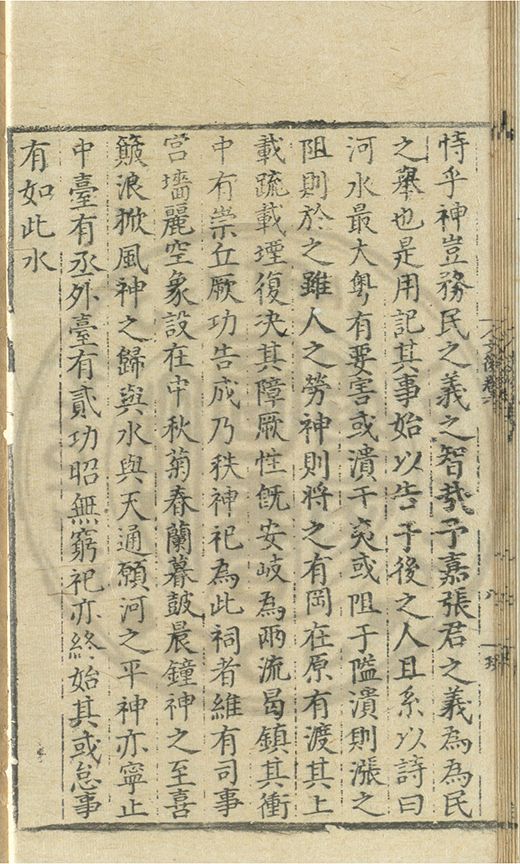 恃乎神豈務民之義之智㢤予嘉張君之義為為民
之舉也是用記其事始以告于後之人且系以詩曰
河水最大粤有要害或潰于夷或阻于隘潰則漲之
阻則於之雖人之勞神則將之有岡在原有渡其上
載疏載堙復決其障厥性旣安岐為兩流曷鎮其衝
中有崇丘厥功告成乃秩神祀為此祠者維有司事
宫墻麗空象設在中秋菊春蘭暮皷晨鐘神之至喜
簸浪掀風神之歸與水與天通願河之平神亦寧止
中臺有丞外臺有貳功昭無窮祀亦終始其或怠事
有如此水